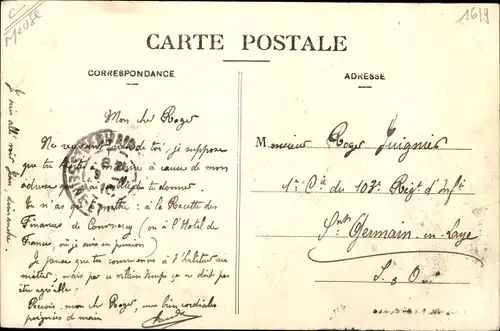 C
Meuse
1619
CARTE POSTALE
CORRESPONDANCE
ADRESSE
Mon cher Roger
Ne recevant rien de toi, je suppose
que tu à cause de mon
adresse que j'ai de te donner.
Tu n'as qu'à mettre : à la Recette des
Finances de Commercy (ou à l'Hôtel de
France, où je suis en pension)
Je pense que tu commences à t'habituer au
métier; mais par ce temps ça ne doit pas
être agréable.
Reçois, mon cher Roger, mes bien cordiales
poignées de main
Je suis allé voir Jean dimanche.
Monsieur Roger Juignier
1re Cie du 103e Régt d'Infie
St Germain-en-Laye
S. & O.